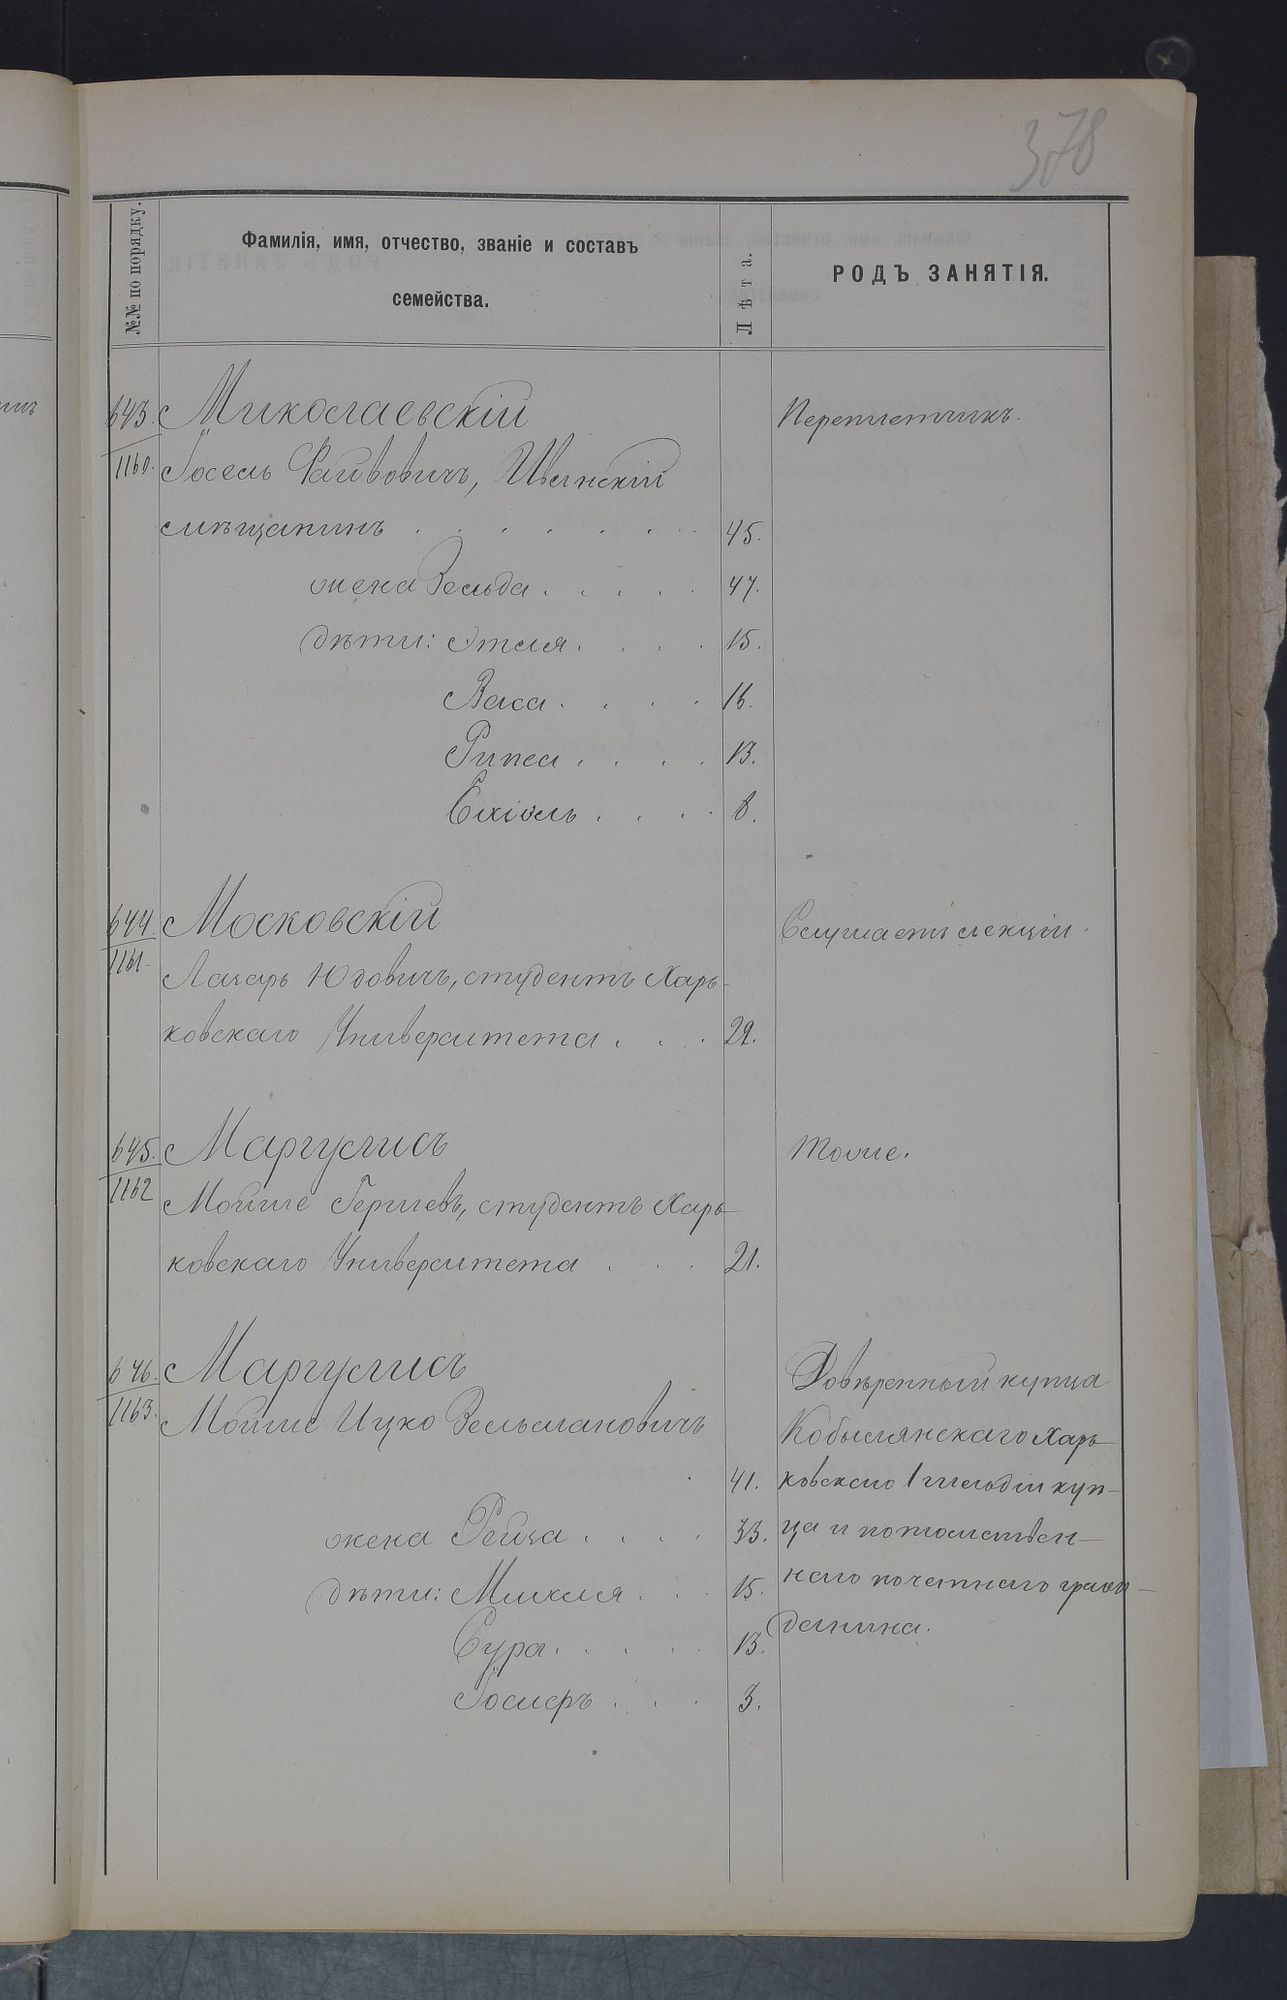 378
№№ по порядку.
Фамилія, имя, отчество, званіе и составъ
семейства.
Лѣта.
РОДЪ ЗАНЯТІЯ.
643. Миколаевскій Переплетчикъ.
1160. Іосель Файвовичъ,
мѣщанинъ . . . . . . 45.
жена Зельда . . . . . 47.
дѣти: Этля . . . . 15.
Васа . . . . 16.
Рипса . . . . 13.
Ехіель . . . . 8.
644. Московскій Слушаетъ лекціи.
1161. Лазарь Юдовичъ, студентъ Харь-
ковскаго Университета . . . 22.
645. Маргулисъ Тоже.
1162 Мойше Гершевъ, студентъ Харь-
ковскаго Университета . . . 21.
646. Маргулисъ Довѣренный купца
1163. Мойше Ицко Зельмановичъ Кобылянскаго Харь-
41. ковскаго 1 гильдіи куп-
жена Рейза . . . . 33. ца и потомствен-
дѣти: Михля . . . 15. наго почетнаго граж-
Сура . . . . . 13. данина.
Іосифъ . . . 3.